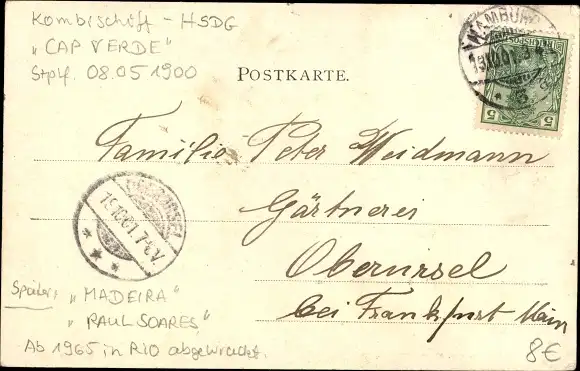 Kombischiff - HSDG
"CAP VERDE"
Stplf. 08.05 1900
POSTKARTE.
HAMBURG
5 5
Familie Peter Weidmann
Gärtnerei
Oberursel
bei Frankfurt Main
OBERURSEL
19.10.01.7-8V
Später: "MADEIRA"
"RAUL SOARES"
Ab 1965 in RIO abgewrackt.
8€